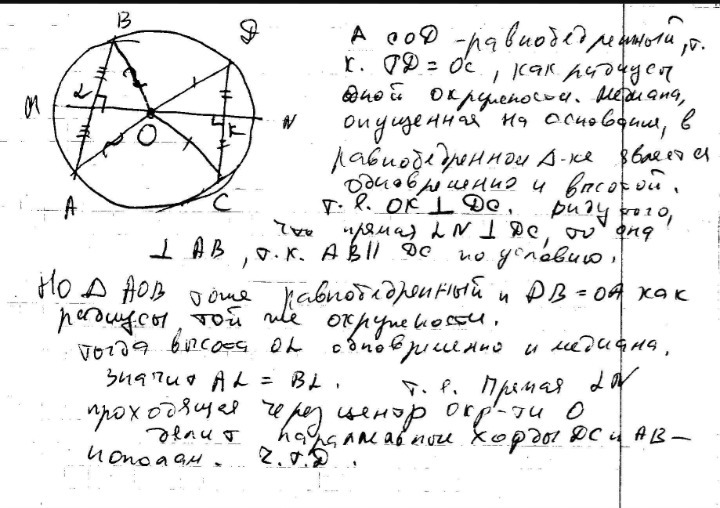 B
D
M
L
K
N
O
A
C
Δ COD - равнобедренный, т.
к. OD = OC, как радиусы
одной окружности. Медиана,
опущенная на основание, в
равнобедренном Δ-ке является
одновременно и высотой.
т. е. OK ⊥ DC. Ввиду того,
что прямая LN ⊥ DC, то она
⊥ AB, т.к. AB || DC по условию.
Но Δ AOB тоже равнобедренный и OB = OA как
радиусы той же окружности.
тогда высота OL одновременно и медиана.
Значит AL = BL. т. е. Прямая LN
проходящая через центр окр-ти O
делит параллельные хорды DC и AB -
пополам. Ч.Т.Д.